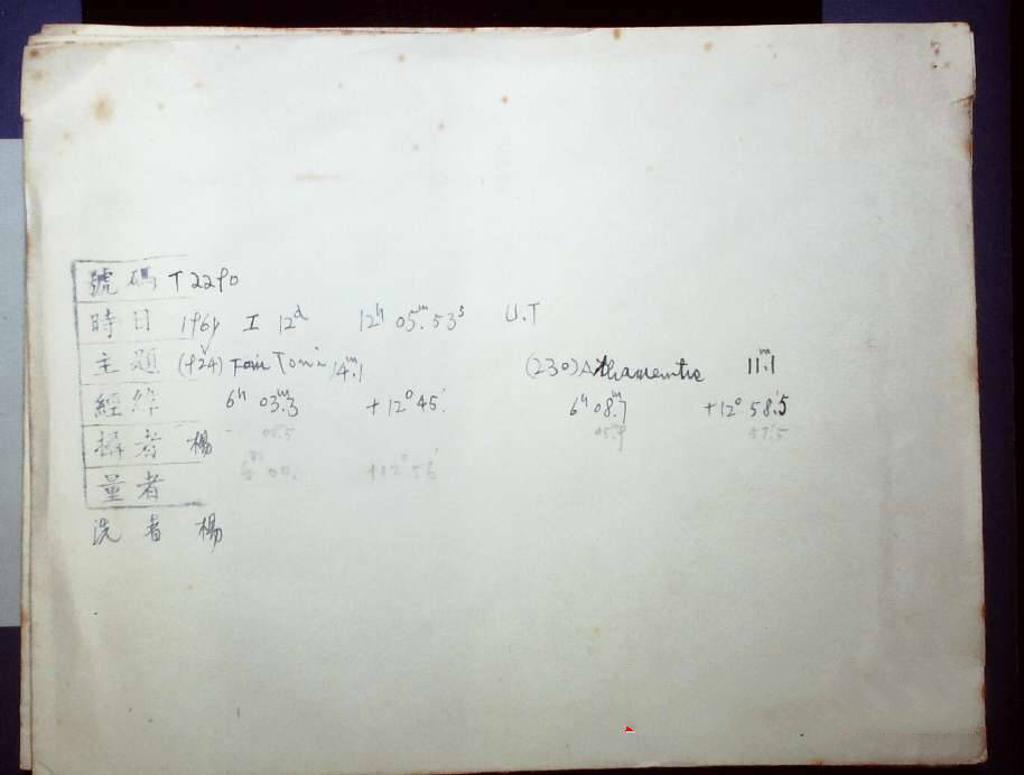 號碼 T 2290
時日 1964 I 12ᵈ 12ʰ 05.ᵐ53ˢ U.T
主題 (924) 14.ᵐ1 (230) 11.ᵐ1
經緯 6ʰ 03.ᵐ3 +12° 45.′ 6ʰ 08.ᵐ7 +12° 58.′5
攝者 楊 05.5 05.9 57.5
6ʰ 00. +12° 56′
量者
洗者 楊